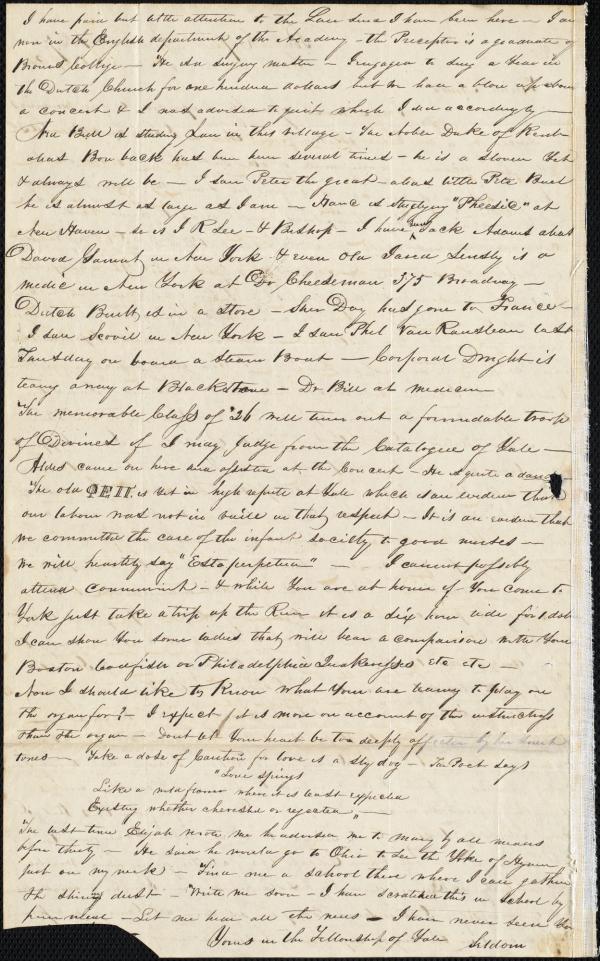 I have paid but little attention to the Law since I have been here — I am
now in the English department of the Academy — the Preceptor is a graduate of
Brown College — singing master — I engaged to sing a Year in
the Dutch Church for one hundred dollars but we had a blow up about
a concert & I was advised to quit which I did accordingly —
Bull is studying Law in this village — The Noble Duke of Kent
alias Bow back has been here several times — he is a sloven Yet
& always will be — I saw Peter the great — alias little Pete Buel
he is almost as large as I am — is studying "Pheesic" at
New Haven — so is I R Lee — & Bishop — I have seen Jack Adams alias
David Gamut in New York & even Old Jared Linsly is a
medic in New York at Dr Cheeseman 375 Broadway —
Dutch Buell is in a store — Sher Day has gone to France —
I saw Scovil in New York — I saw Phil Van Ranslear last
Tuesday on board a Steam Boat — Corporal Dwight is
teaing away at Blackstone — Dr Bill at medicine
The memorable Class of '26 will turn out a formidable troop
of Divines if I may Judge from the Catalogue of Yale —
came on here and assisted at the Concert — He is quite a
The old is Yet in high repute at Yale which is an evidence that
our labour was not in vain in that respect — It is an evidence that
we committed the care of the infant society to good nurses —
We will heartily say "Esto perpetua" — I cannot possibly
attend commencement — & while You are at home if You come to
York just take a trip up the River it is a six hour ride for 1 doll
I can show You some ladies that will bear a comparison with Your
Boston Codfish or Philadelphia Quakeresses etc etc —
Now I should like to know what Your are learning to play on
the organ for? — I expect it is more on account of the instructress
than the organ — Dont let Your heart be too deeply affected by her
tones — Take a dose of Caution for love is a sly dog — The Poet says
"Love springs
Like a wild flower where it is least expected
Existing whether cherished or rejected" —
The last time Elijah wrote me he advised me to marry by all means
before thirty — He said he would go to Ohio to see the Yoke of Hymen
put on my neck — Find me a school there where I can gather
the shining dust — Write me soon — I have scratched this in School by
— Let me hear all the news — I have never seen You
Yours in the Fellowship of Yale Seldom